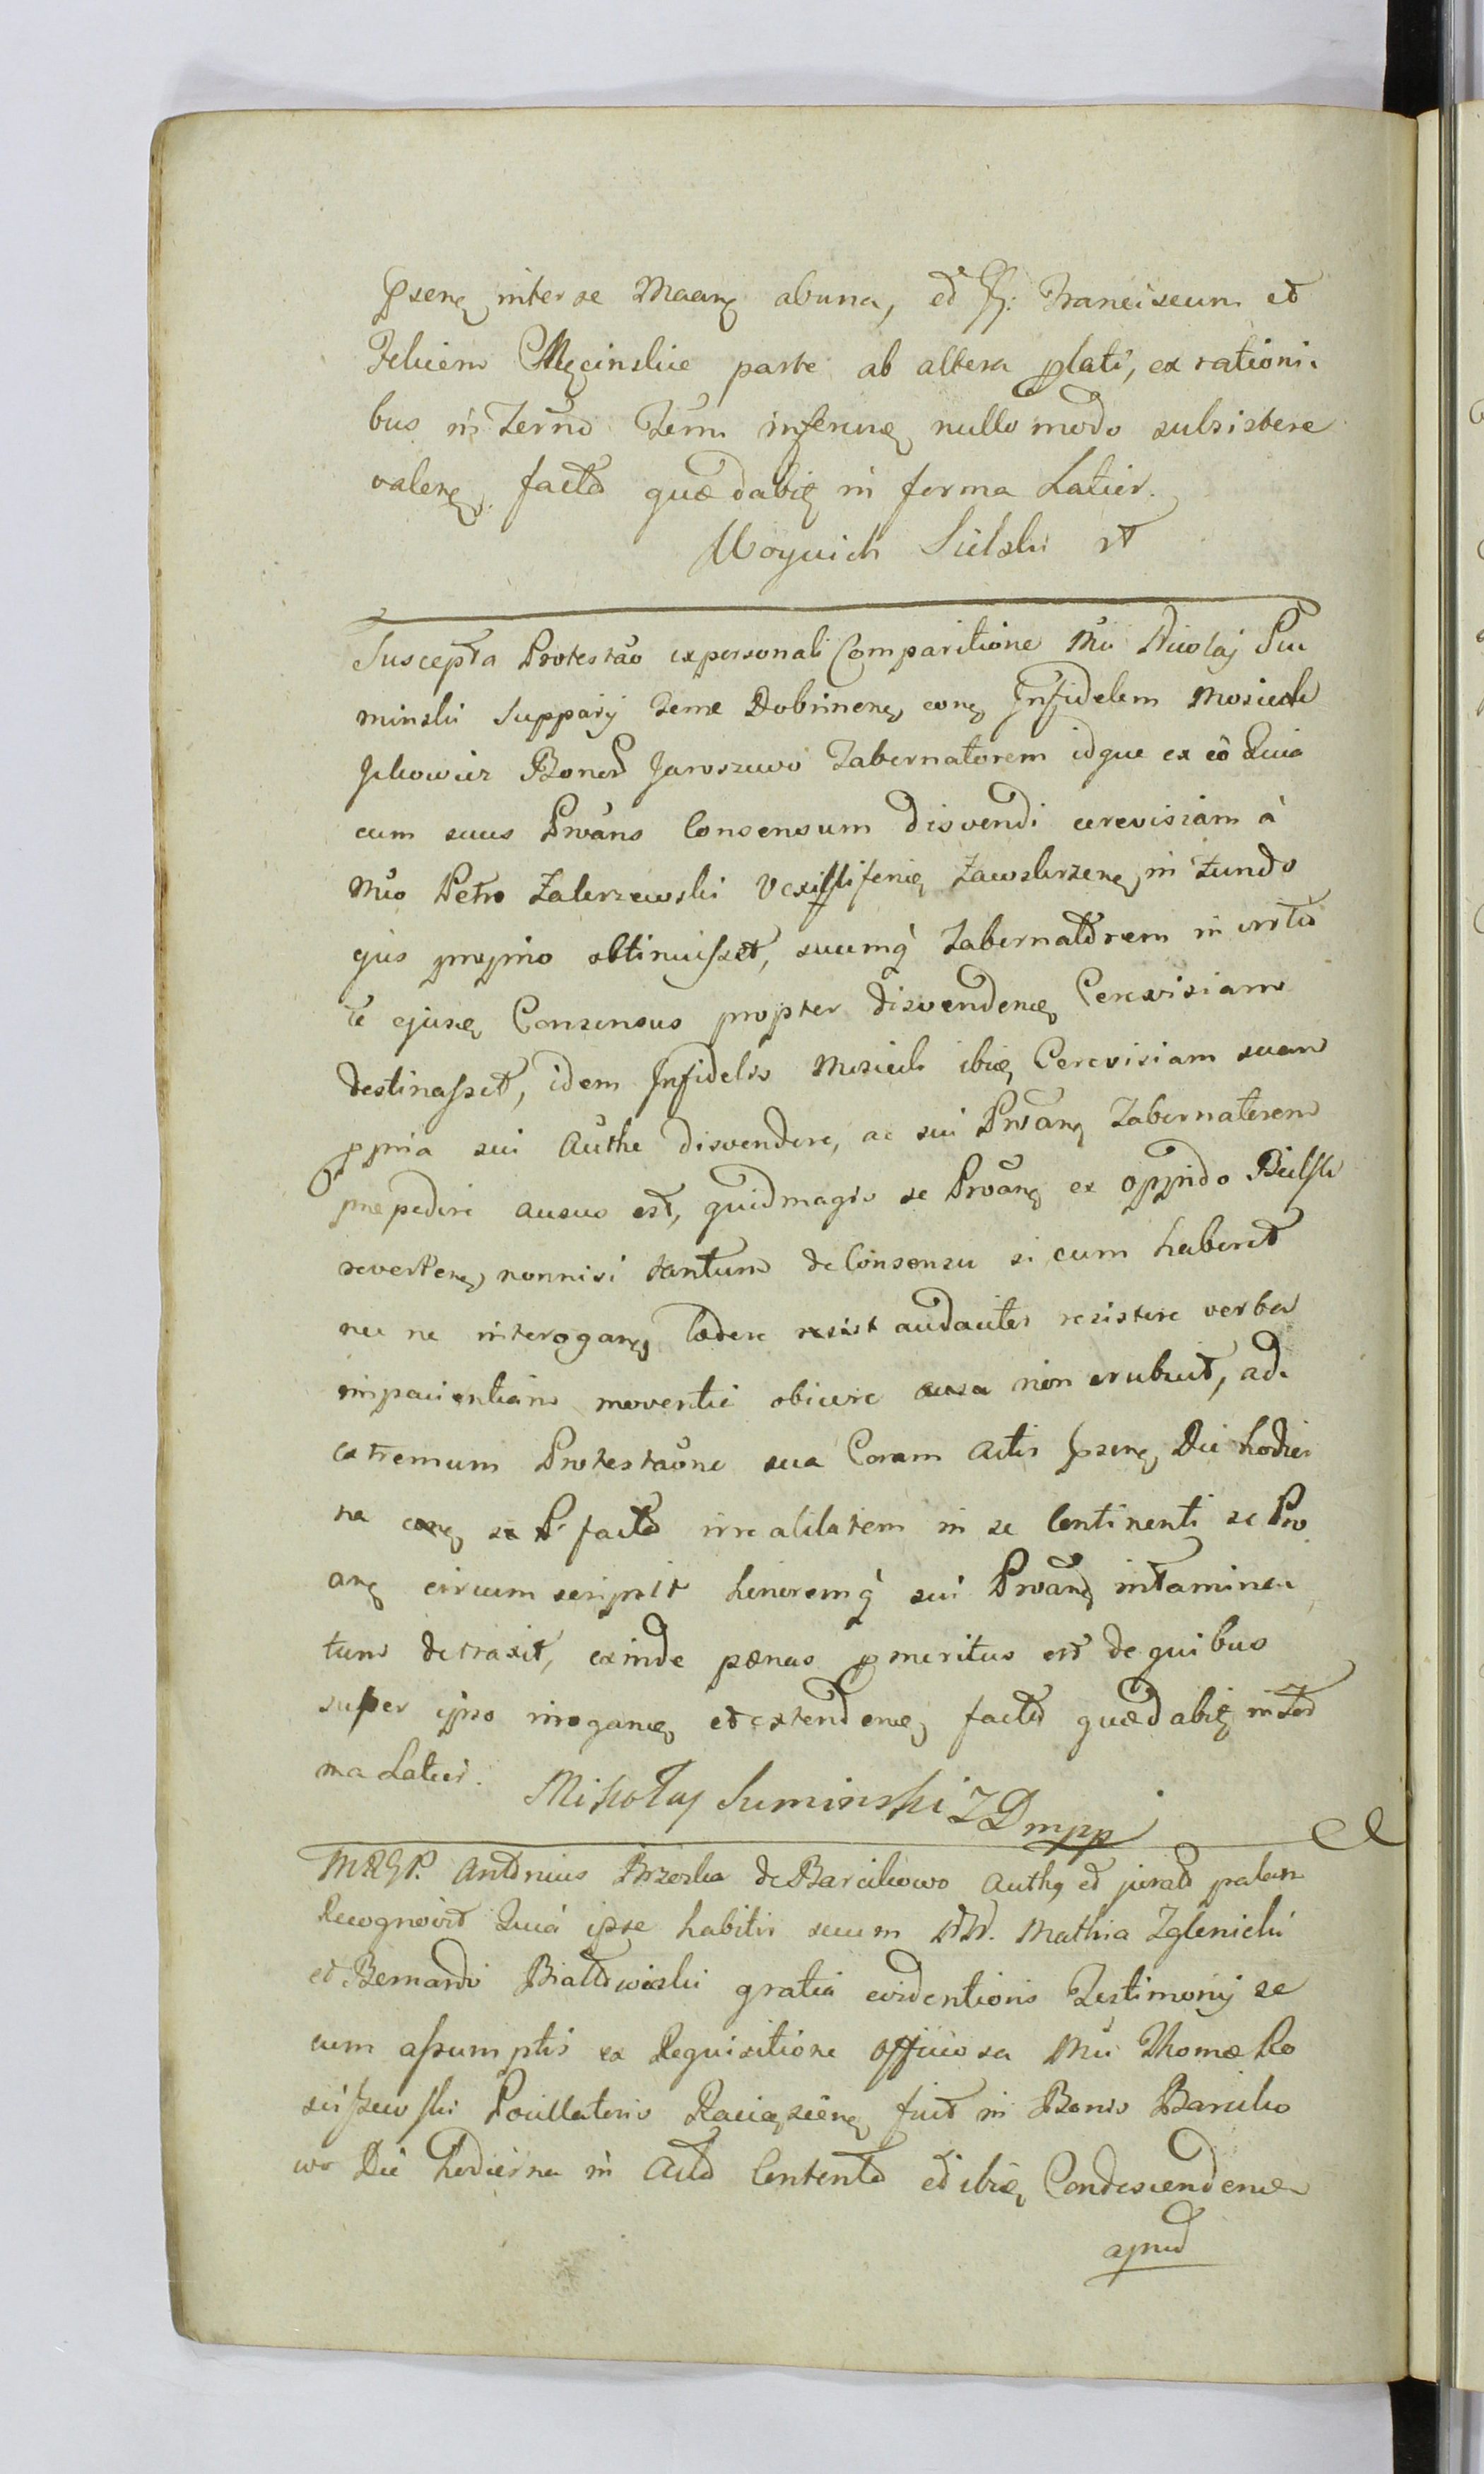 inter se abuna, et Franciscum et
Felicem Męcinskie parte ab altera plati, ex rationi.
bus in Terño inferend nullo modo subsistere
valere, facta quæ dabit in forma Latior.
Woyciech Sielski
Suscepta Protestao ex personali Comparitione Mci Nicolaj Su
minski Supparij Terræ Dobrinens, Infidelem Mosiek
Jckowicz Bonor Jaroszewo Tabernatorem idque ex eo Quia
cum suus Prõans Consensum disvendi cerevisiam à
Mco Petro Zakrzewski Vexillifero Zawskrzens, in Fundo
ejus proprio obtinuisset, suumq Tabernatorem in
ejusd Consensus propter disvendend Cerevisiam
destinasset, idem Infidelis Mosiek ibid Cerevisiam suam
ppria sui Authe disvendere, ac sui Prõans Tabernatorem
præpedire ausus est, quidmagis se Prõans ex oppido Bielsk
revertens, nonnisi tantum de Consensu si eum haberet
nec ne interogans, audacter resistere verba
impacientiam moventia obicere ausa non erubuit, ad.
extremum Protestaone sua Coram Actis Die hodier
na facta irrealitatem in se Continenti se Pro
ans circumscripsit honoremq sui Prõans intamina
tum detraxit, exinde pænas pmeritus est de quibus
super ipso irrogand et extendend, facta quæ dabit in For
ma Latior. Mikołay Suminski Z D mpp
Antonius Brzeska de Barcikowo Authg et jurad palam
Recognovit Quia ipse habitis secum NN. Mathia Zglenicki
et Bernardo Białowieski gratia evidentioris Testimonij se
cum assumptis ex Requisitione officiosa Mci Thomæ Ko
sciszewski Pocillatoris Raciązens, fuit in Bonis Barciko
wo Die hodierna in Actu Contento et ibid Condescendend
apud